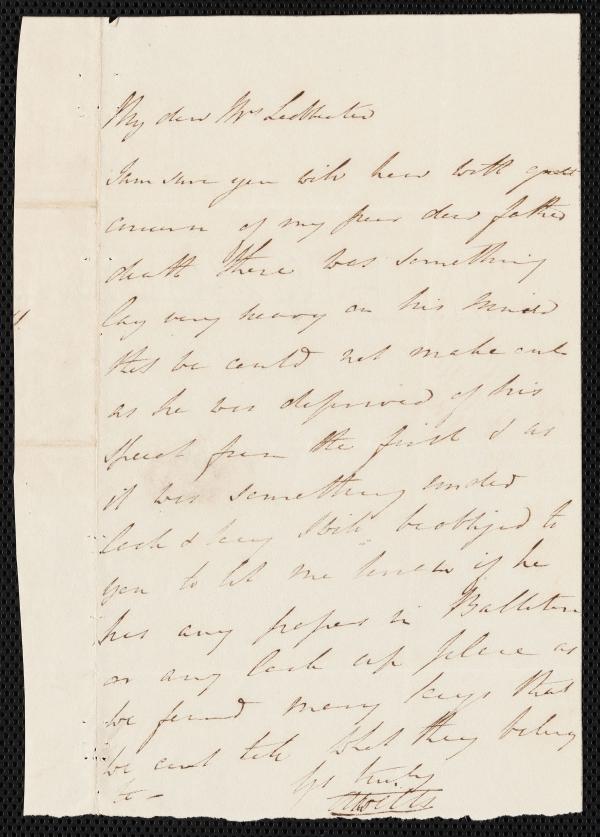 My dear Mrs Leadbeater
I am sure you will hear with great
concern of my poor dear father
death There was something
lay very heavy on his mind
that we could not make out
as he was deprived of his
speech from the first & as
it was something under
lock & key I will be obliged to
you to let me know if he
has any papers in Ballitore
or any lock up place as
we found many keys that
we cant tell what they belong
to – Yrs truly